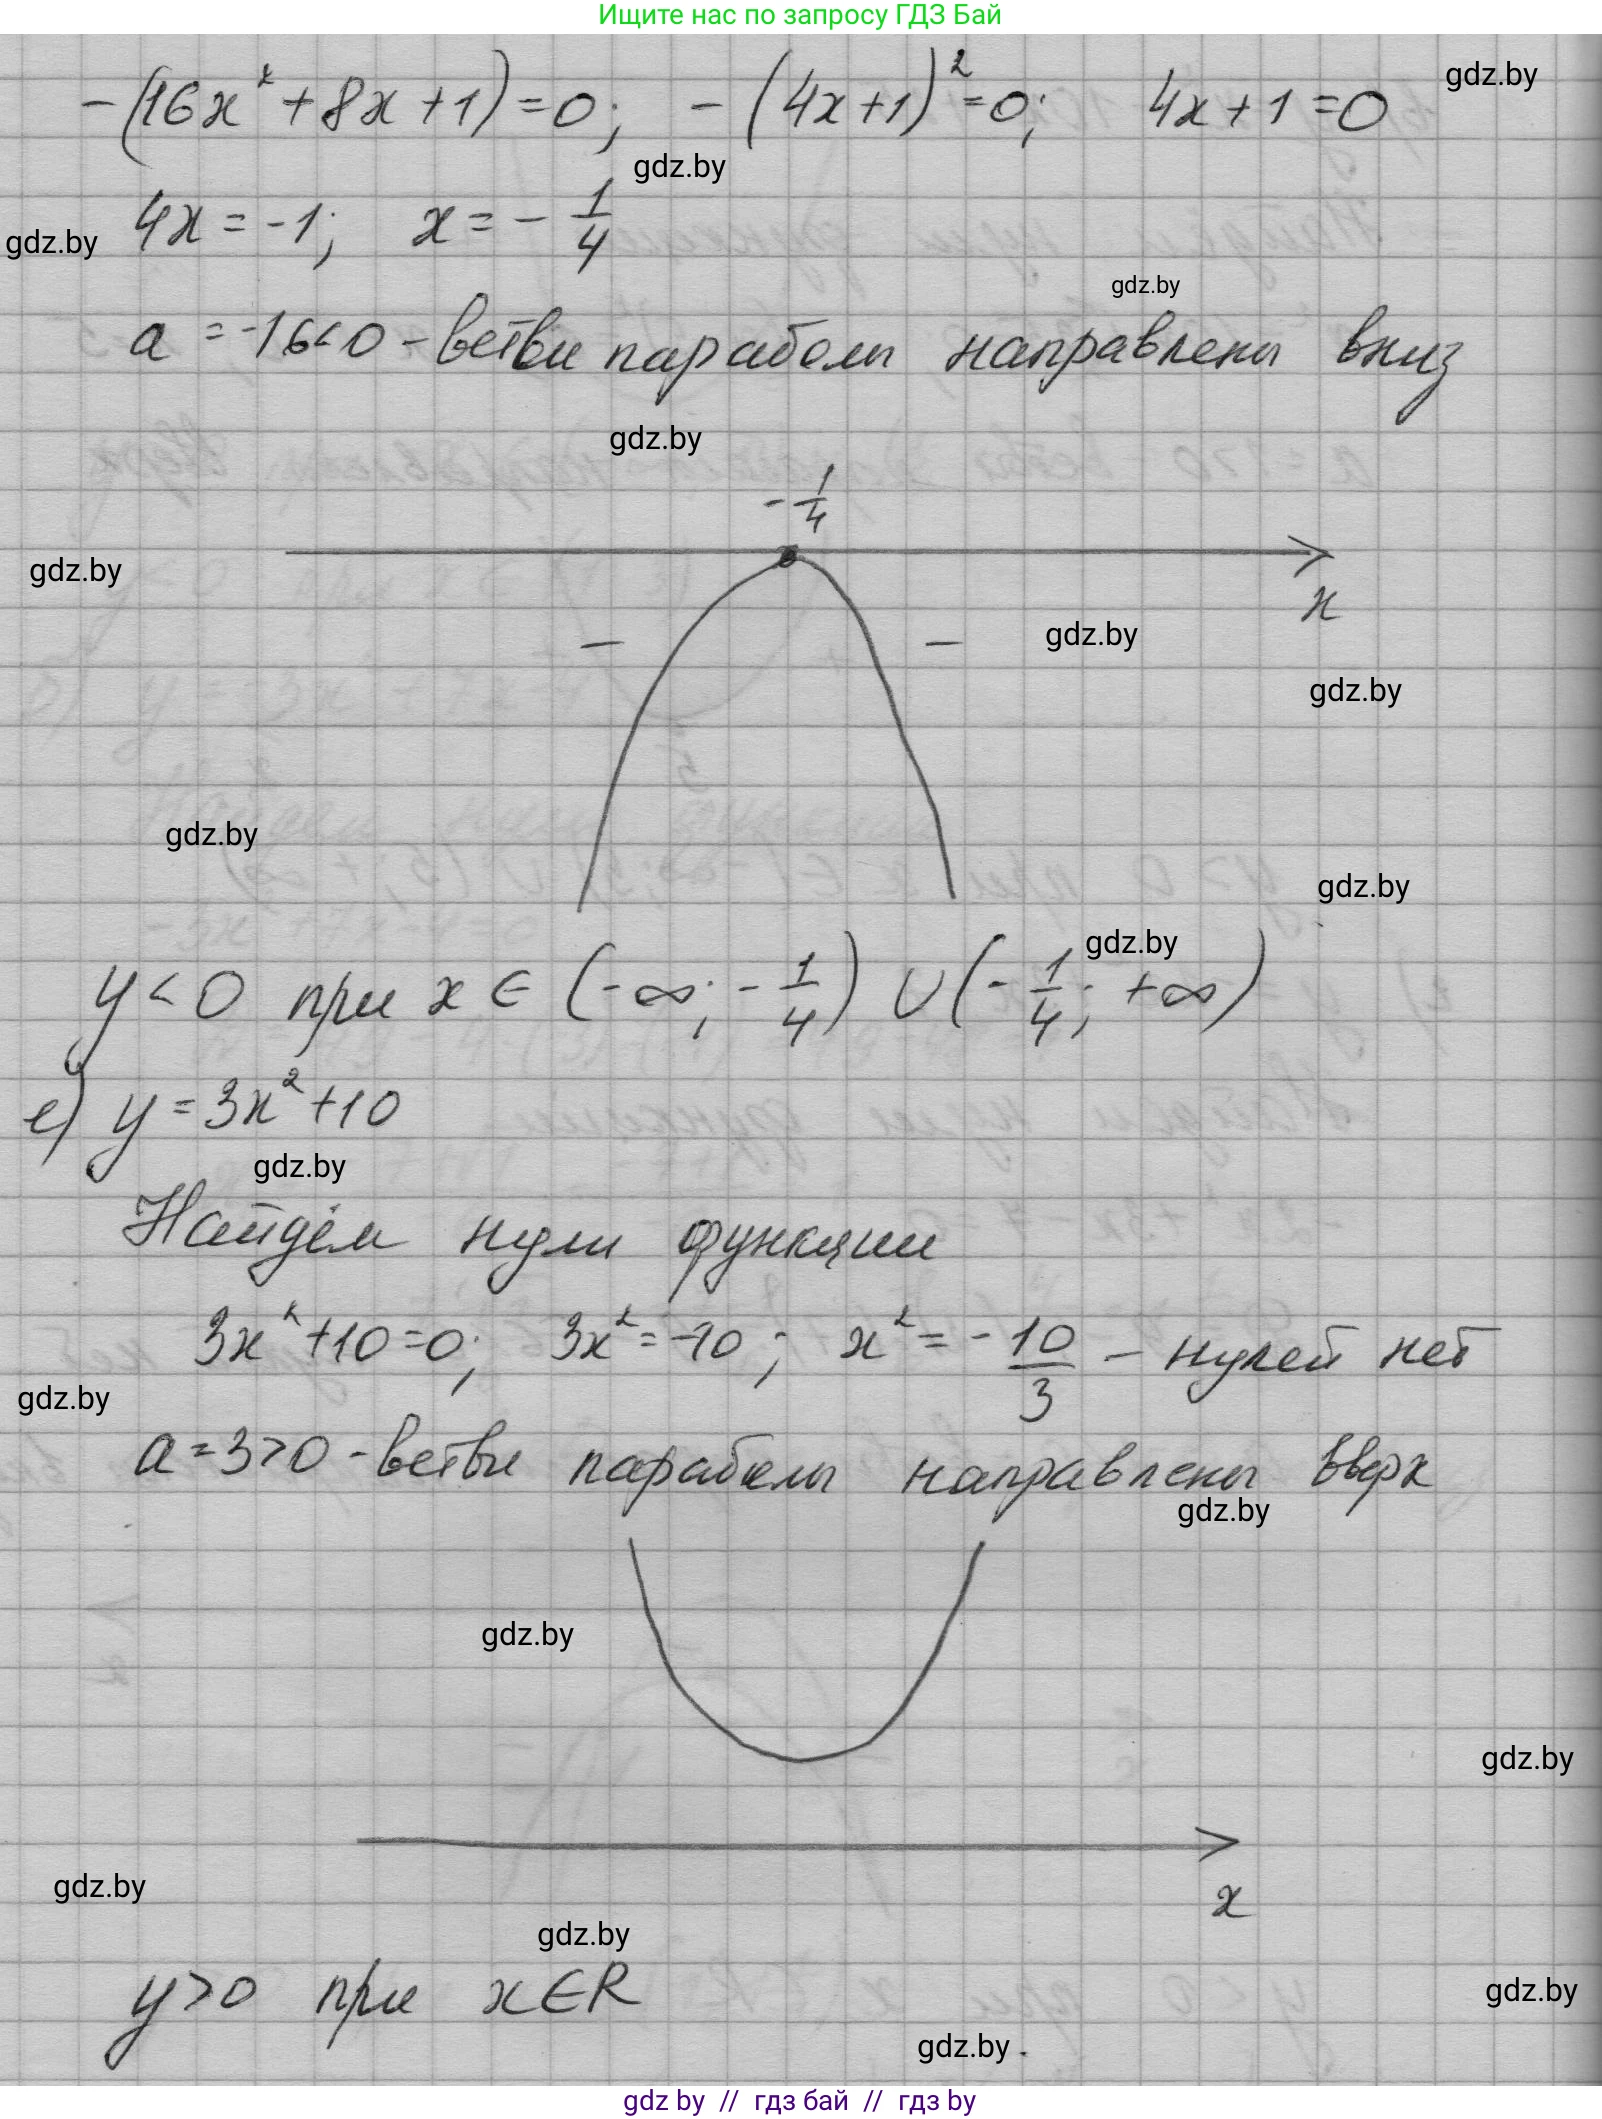 Ищите нас по запросу ГДЗ Бай
-(16x²+8x+1)=0; -(4x+1)²=0; 4x+1=0
gdz.by
gdz.by
4x=-1; x=-1/4
gdz.by
gdz.by
a=-16<0 - ветви параболы направлены вниз
gdz.by
-1/4
gdz.by
x
- -
gdz.by
gdz.by
gdz.by
gdz.by
gdz.by
y<0 при x∈(-∞;-1/4)∪(-1/4;+∞)
е) y=3x²+10
gdz.by
Найдём нули функции
3x²+10=0; 3x²=-10; x²=-10/3 - нулей нет
gdz.by
a=3>0 - ветви параболы направлены вверх
gdz.by
gdz.by
gdz.by
gdz.by
x
gdz.by
y>0 при x∈R
gdz.by
gdz.by
gdz.by // гдз бай // гдз by